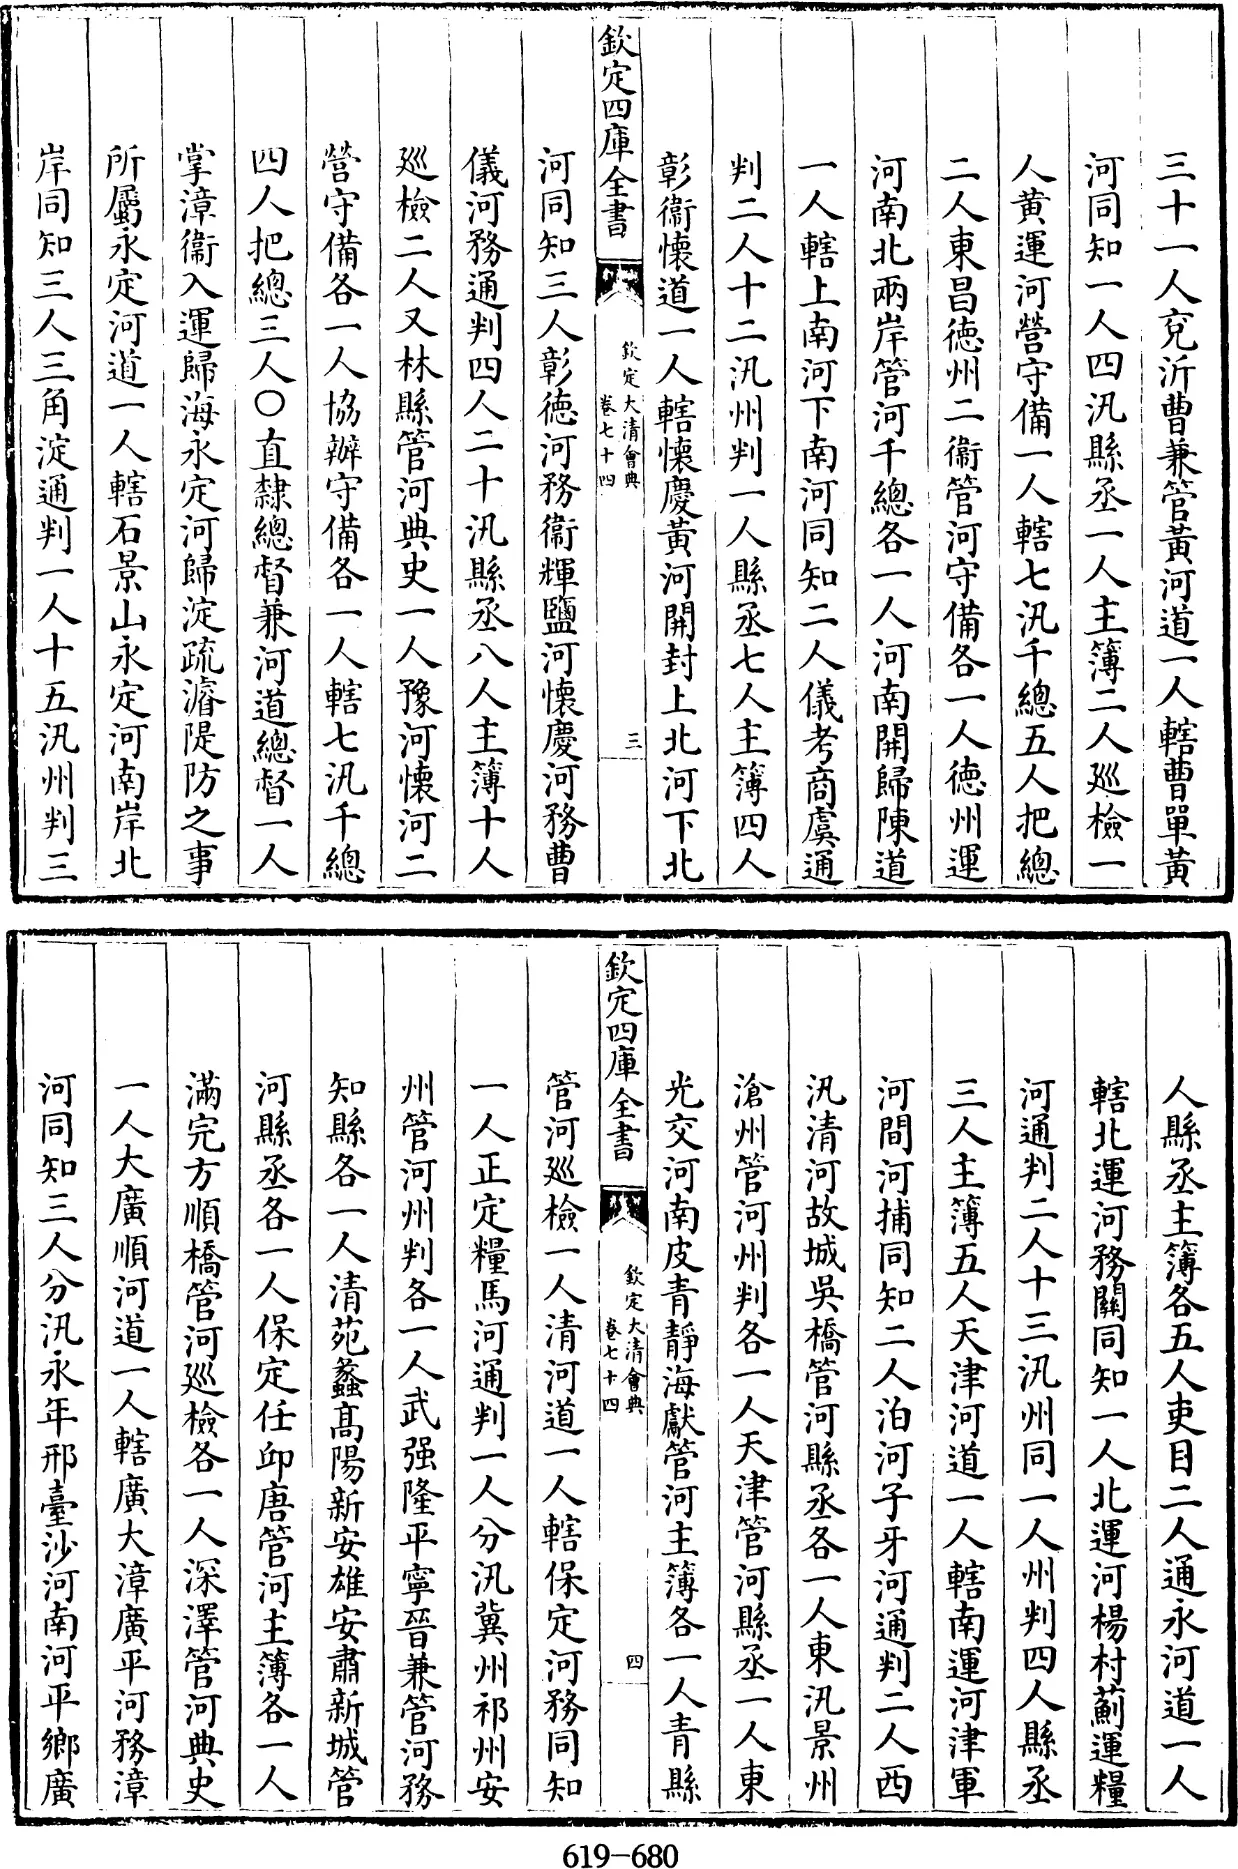 三十一人兗沂曹兼管黃河道一人轄曹單黃
河同知一人四汛縣丞一人主簿二人廵檢一
人黃運河營守備一人轄七汛千總五人把總
二人東昌德州二衞管河守備各一人德州運
河南北兩岸管河千總各一人河南開歸陳道
一人轄上南河下南河同知二人儀考商虞通
判二人十二汛州判一人縣丞七人主簿四人
彰衞懷道一人轄懷慶黃河開封上北河下北
欽定四庫全書
欽定大清會典
卷七十四
三
河同知三人彰德河務衞輝鹽河懷慶河務曹
儀河務通判四人二十汛縣丞八人主簿十人
廵檢二人又林縣管河典史一人豫河懷河二
營守備各一人協辦守備各一人轄七汛千總
四人把總三人〇直隸總督兼河道總督一人
掌漳衞入運歸海永定河歸淀疏濬隄防之事
所屬永定河道一人轄石景山永定河南岸北
岸同知三人三角淀通判一人十五汛州判三
人縣丞主簿各五人吏目二人通永河道一人
轄北運河務關同知一人北運河楊村薊運糧
河通判二人十三汛州同一人州判四人縣丞
三人主簿五人天津河道一人轄南運河津軍
河間河捕同知二人泊河子牙河通判二人西
汛清河故城吳橋管河縣丞各一人東汛景州
滄州管河州判各一人天津管河縣丞一人東
光交河南皮青靜海獻管河主簿各一人青縣
欽定四庫全書
欽定大清會典
卷七十四
四
管河廵檢一人清河道一人轄保定河務同知
一人正定糧馬河通判一人分汛冀州祁州安
州管河州判各一人武强隆平寧晉兼管河務
知縣各一人清苑蠡高陽新安雄安肅新城管
河縣丞各一人保定任邱唐管河主簿各一人
滿完方順橋管河廵檢各一人深澤管河典史
一人大廣順河道一人轄廣大漳廣平河務漳
河同知三人分汛永年邢臺沙河南河平鄉廣
619-680